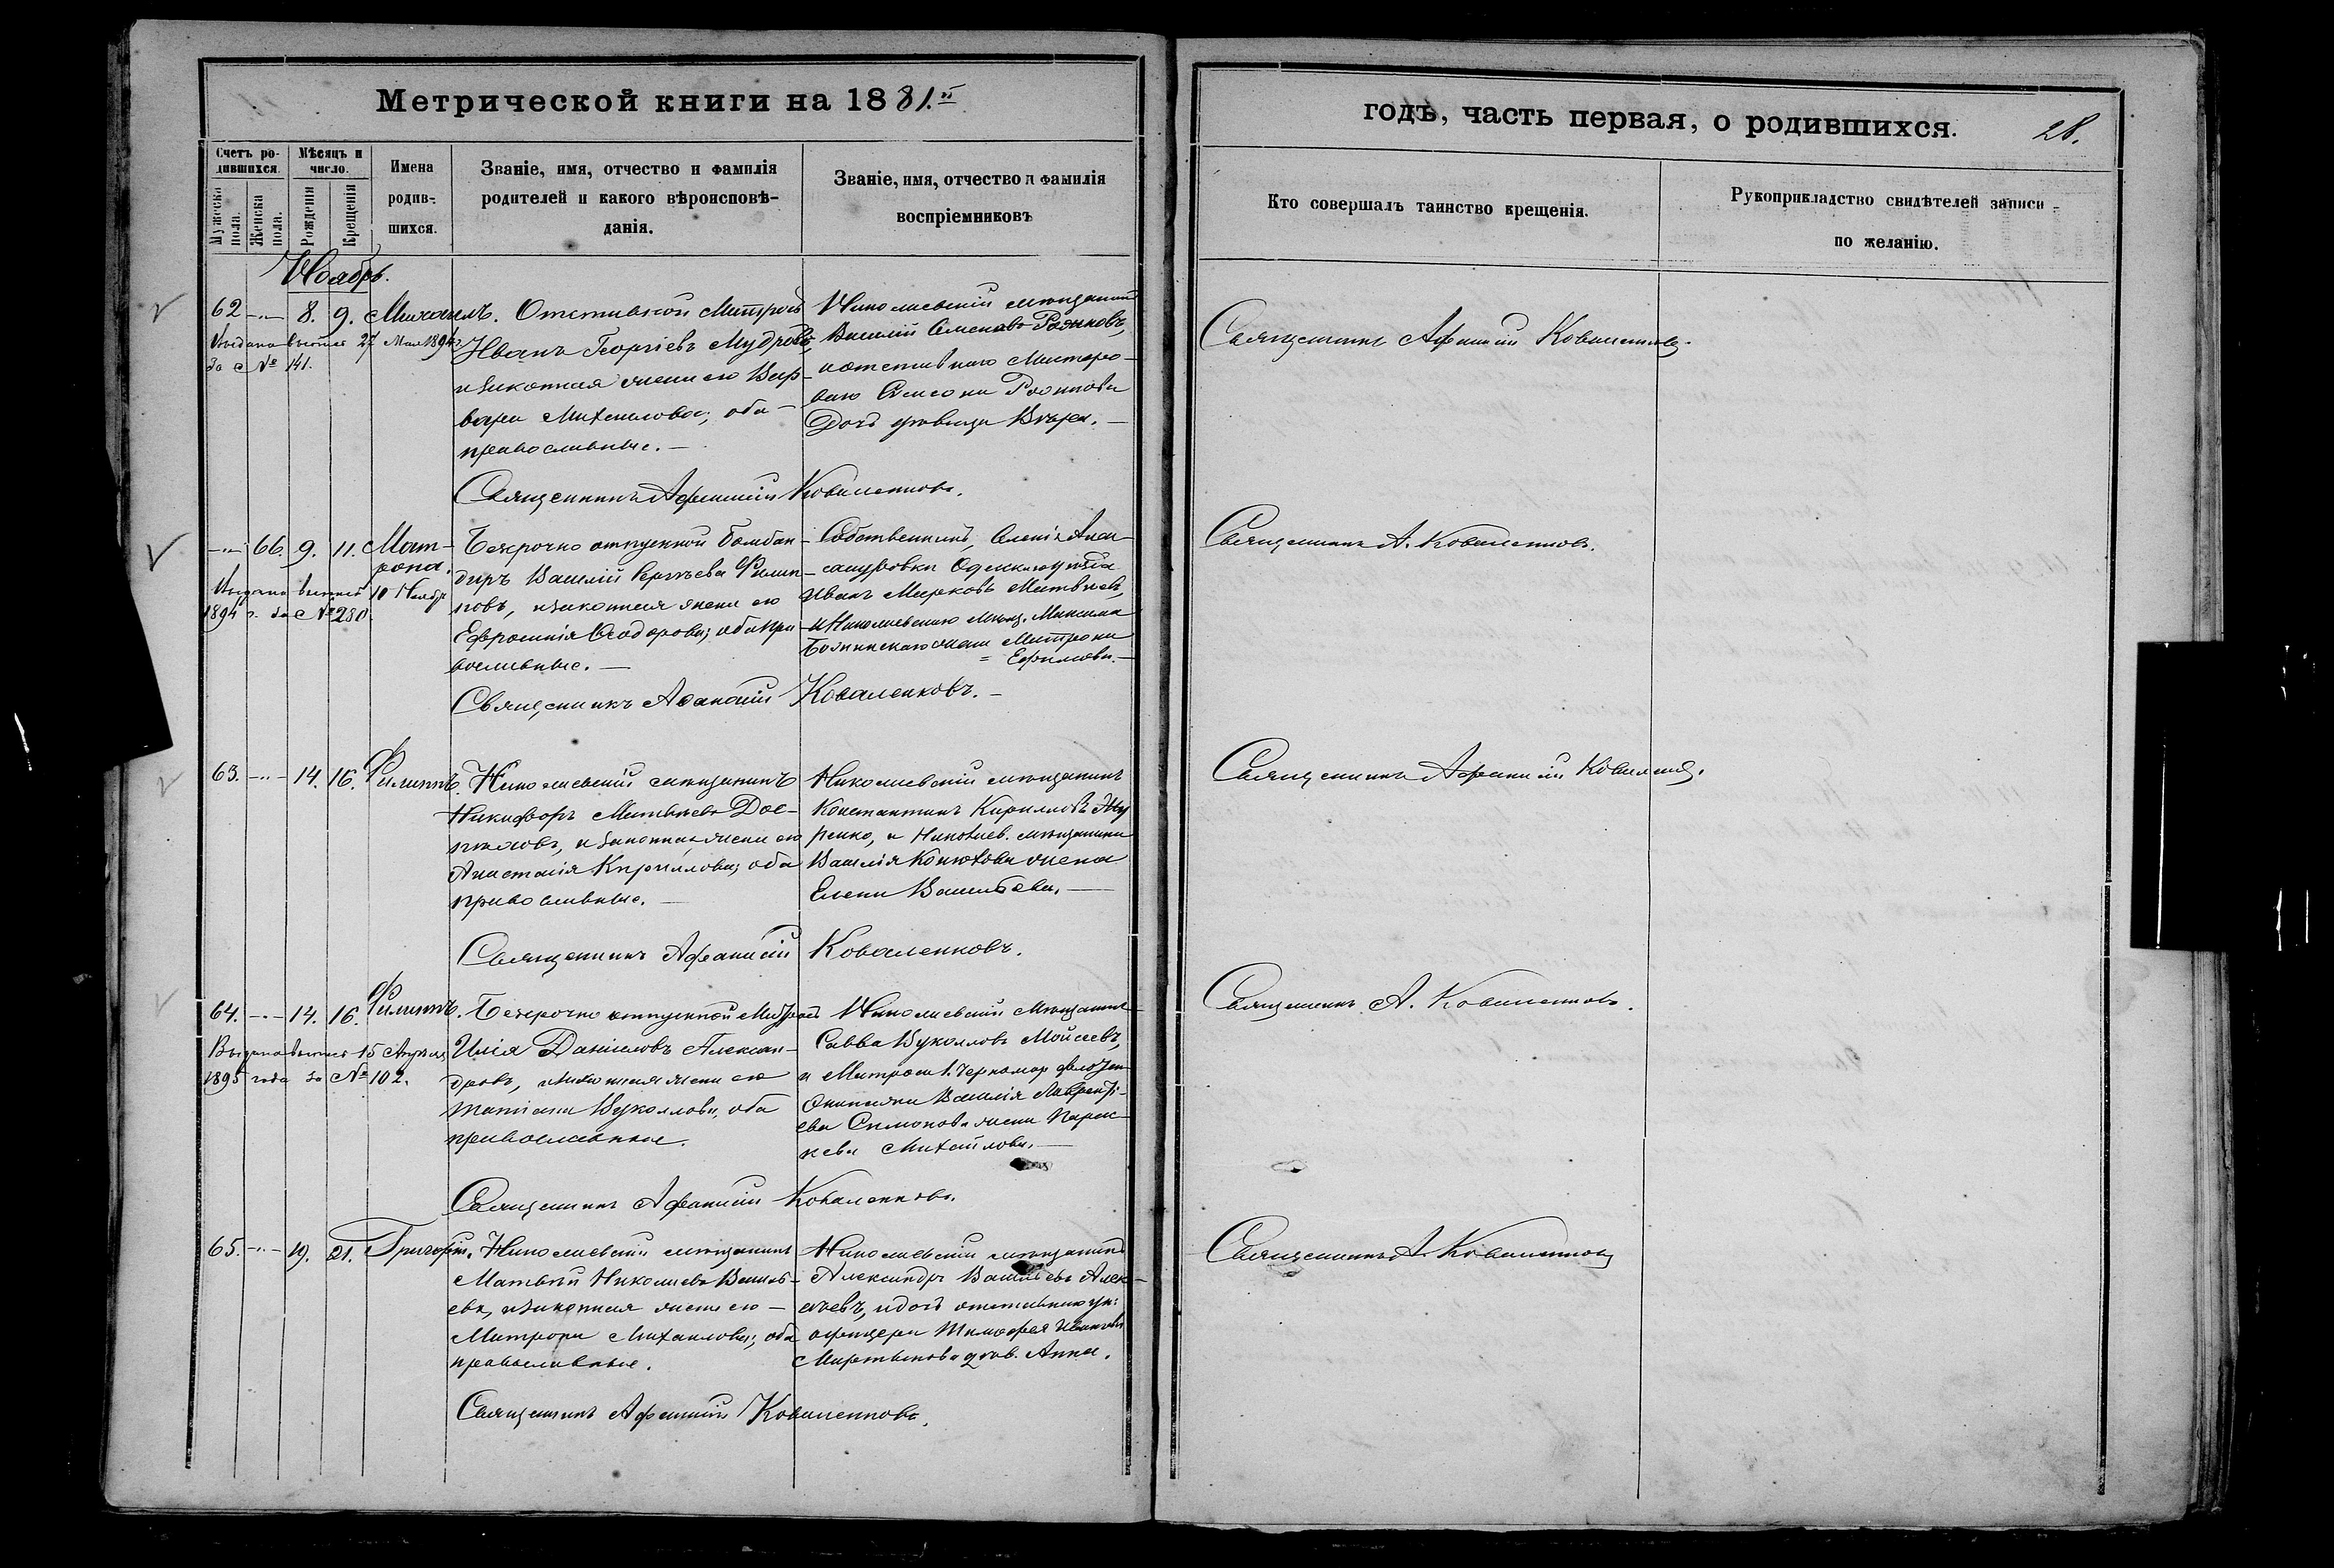 Метрической книги на 1881.й
годъ, часть первая, о родившихся.
28.
Счетъ родившихся.
Мужеска пола.
Женска пола.
Мѣсяцъ и число.
Рожденія
Крещенія
Имена
родив-
шихся.
Званіе, имя, отчество и фамилія
родителей и какого вѣроисповѣ-
данія.
Званіе, имя, отчество и фамилія
воспріемниковъ
Кто совершалъ таинство крещенія.
Рукоприкладство свидѣтелей записи
по желанію.
Ноябрь.
62 -"- 8. 9. Михаилъ.
27 Мая 1894
За № 141.
Отставной Матросъ
Иванъ Георгіевъ Мудровъ,
и законная жена его Вар-
вара Михаилова; оба
православные. —
Николаевскій мѣщанинъ
Василій Семеновъ
и отставнаго Матрос-
Дочь дѣвица Вѣра. —
Священникъ Афанасій Коваленковъ.
Священникъ Афанасій Коваленковъ.
-"- 66. 9. 11. Мат-
рона.
Выдана 10 Ноябр
1894 г. за № 280
Безсрочно отпускной Бомбан-
диръ Василій Сергѣевъ Филип-
повъ, и законная жена его
Ефросинія Ѳеодорова; оба пра-
вославные. —
Собственникъ,
Иванъ Марковъ Матвѣевъ,
и Николаевскаго мѣщ. Максима
жена Матрона
Ефимова. —
Священникъ Аѳанасій Коваленковъ. —
Священникъ А. Коваленковъ.
63. -"- 14. 16. Филиппъ.
Николаевскій мѣщанинъ
Никифоръ Матвѣевъ
и законная жена его
Анастасія Кириллова; оба
православные. —
Николаевскій мѣщанинъ
Константинъ Кирилловъ
и Николаев. мѣщанина
Василія Конюхова жена
Елена Васильева. —
Священникъ Афанасій Коваленковъ.
Священникъ Афанасій Коваленков.
64. -"- 14. 16. Филиппъ.
Выдана 15 Апрѣля
1895 года за № 102.
Безсрочно отпускной Матросъ
Илія Даніиловъ Алексан-
дровъ, и законная жена его
Татіана Вуколлова, оба
православные.
Николаевскій Мѣщанинъ
Савва Вуколловъ Мойсеевъ,
и Матроса 1. Черномор.
Экипажа Василія Лаврентъ-
ева Симонова жена Парас-
кева Михайлова. —
Священникъ Афанасій Коваленковъ.
Священникъ А. Коваленковъ.
65. -"- 19. 21. Григорій.
Николаевскій мѣщанинъ
Матвѣй Николаевъ Василь-
евъ, и законная жена его —
Матрона Михаилова; оба
православные.
Николаевскій мѣщанинъ
Александръ Васильевъ Алек-
сѣевъ, и дочь отставнаго ун:
офицера Тимофея Иванова
Мартынова дѣв. Анна.
Священникъ Афанасій Коваленковъ.
Священникъ А. Коваленковъ